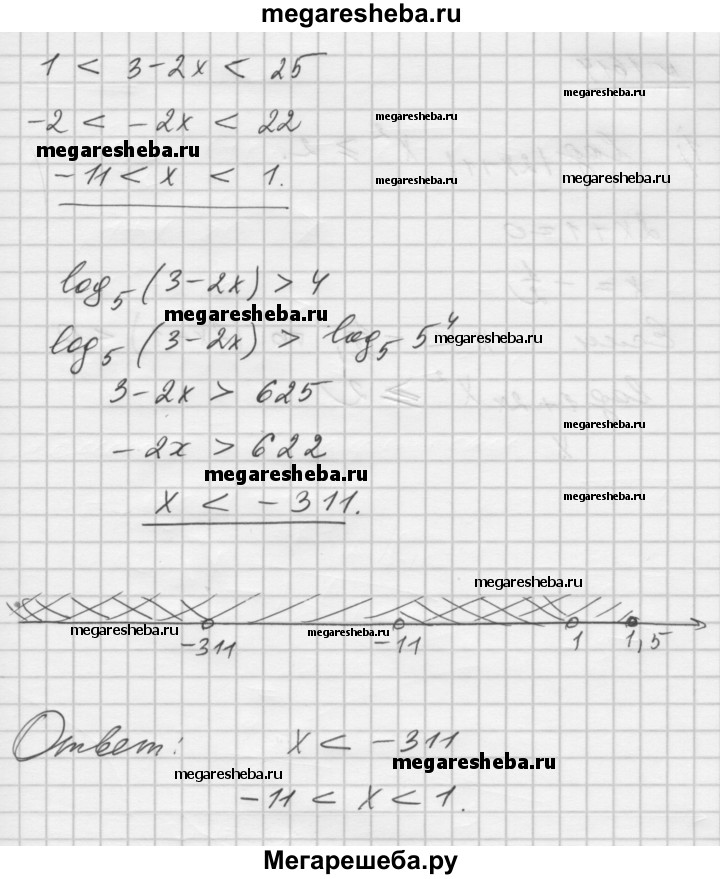 megaresheba.ru
1 < 3-2x < 25
megaresheba.ru
-2 < -2x < 22
megaresheba.ru
megaresheba.ru
-11 < x < 1.
megaresheba.ru
megaresheba.ru
log₅(3-2x) > 4
megaresheba.ru
log₅(3-2x) > log₅ 5⁴
megaresheba.ru
3-2x > 625
megaresheba.ru
-2x > 622
megaresheba.ru
x < -311.
megaresheba.ru
megaresheba.ru
megaresheba.ru
megaresheba.ru
-311 -11 1 1,5
Ответ: x < -311
megaresheba.ru
megaresheba.ru
-11 < x < 1.
Мегарешеба.ру